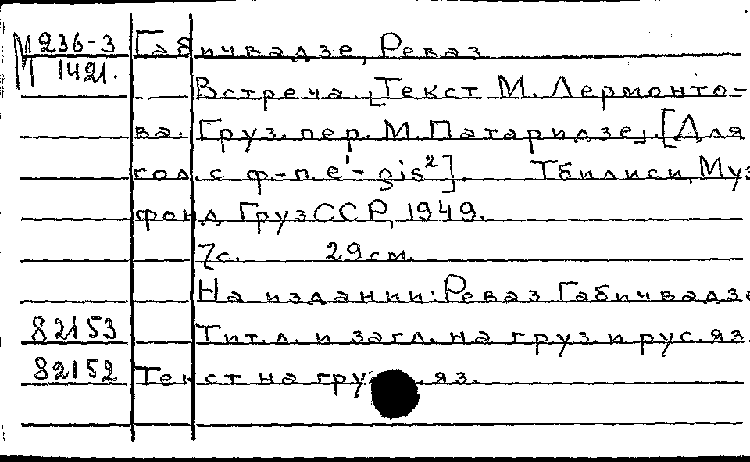 М 236-3 Габичвадзе, Реваз
1421.
Встреча. [Текст М. Лермонто-
ва. Груз. пер. М. Патаридзе]. [Для
гол. с ф-п. e¹-gis²]. Тбилиси, Муз
фонд ГрузССР, 1949.
7с. 29см.
На издании: Реваз Габичвадзе
82153 Тит. л. и загл. на груз. и рус. яз.
82152 Текст на гру яз.